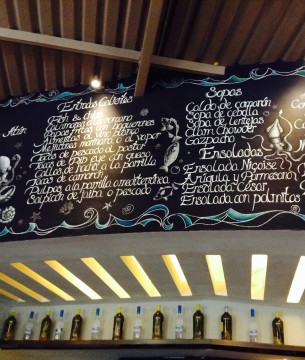 Entradas Calientes
Fish & chips
Calamares a la romana
Papas fritas con
Almejitas al vino blanco
Mejillones marinara o al vapor
Tacos de pescado al pastor
Tacos de Rib eye con queso
Callos de hacha a la parrilla
Tacos de camarón
Pulpos a la parrilla o mediterránea
Sopes de jaiba o pescado
Atún
Sopas
Caldo de camarón
Sopa de cebolla
Sopa de lentejas
Clam Chowder
Gazpacho
Ensaladas
Ensalada Niçoise
Arúgula y Parmesano
Ensalada César
Ensalada con palmitos